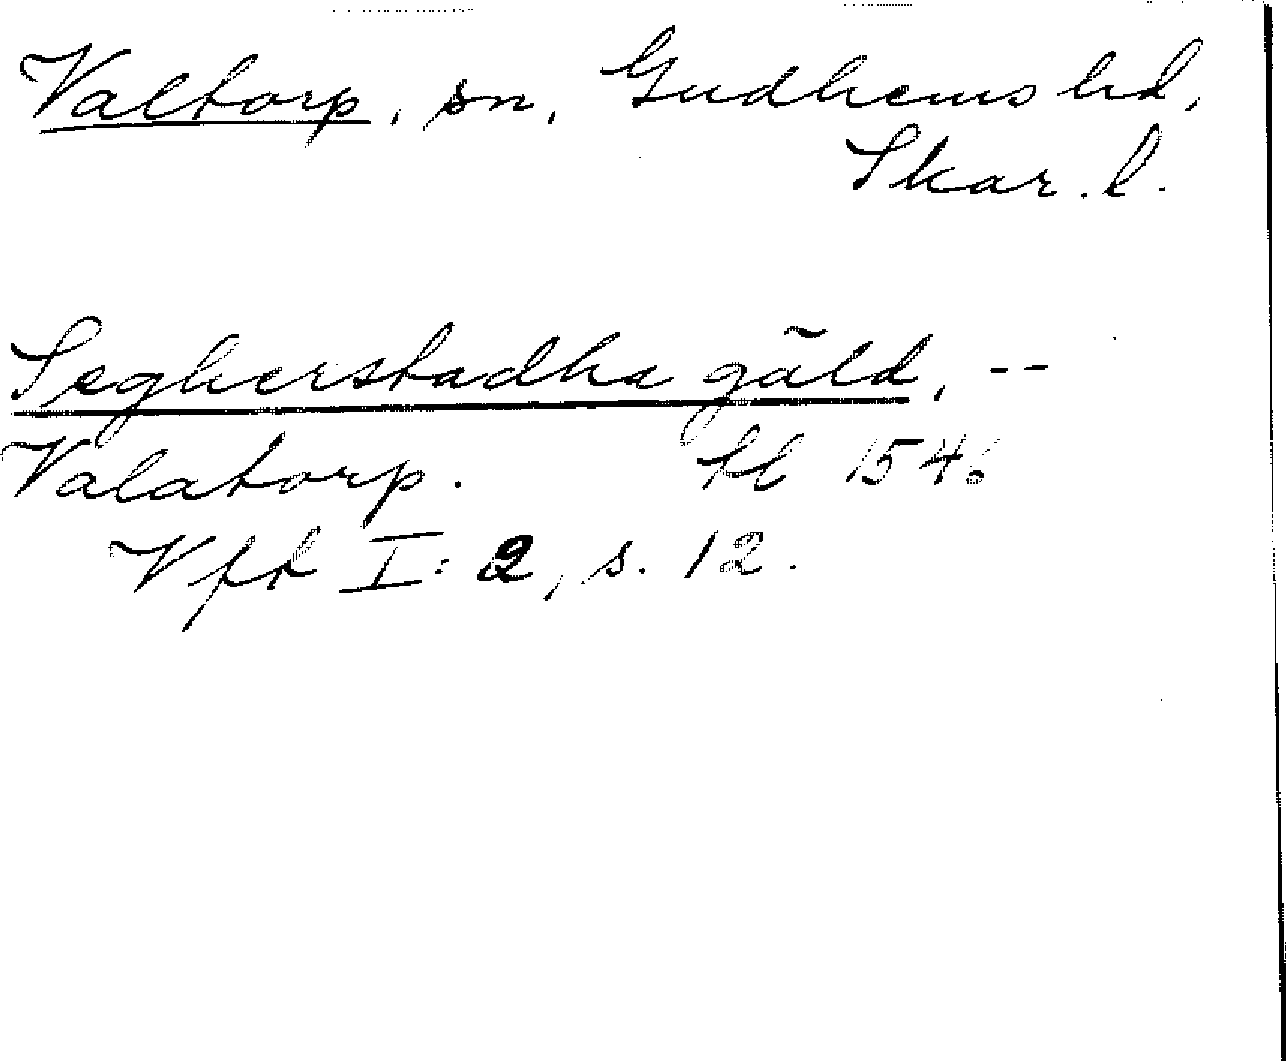 Valtorp, sn, Gudhems hd,
Skar. l.
Segherstadha gäld, --
Valatorp. tl 1546
Vft I: 2, s. 12.